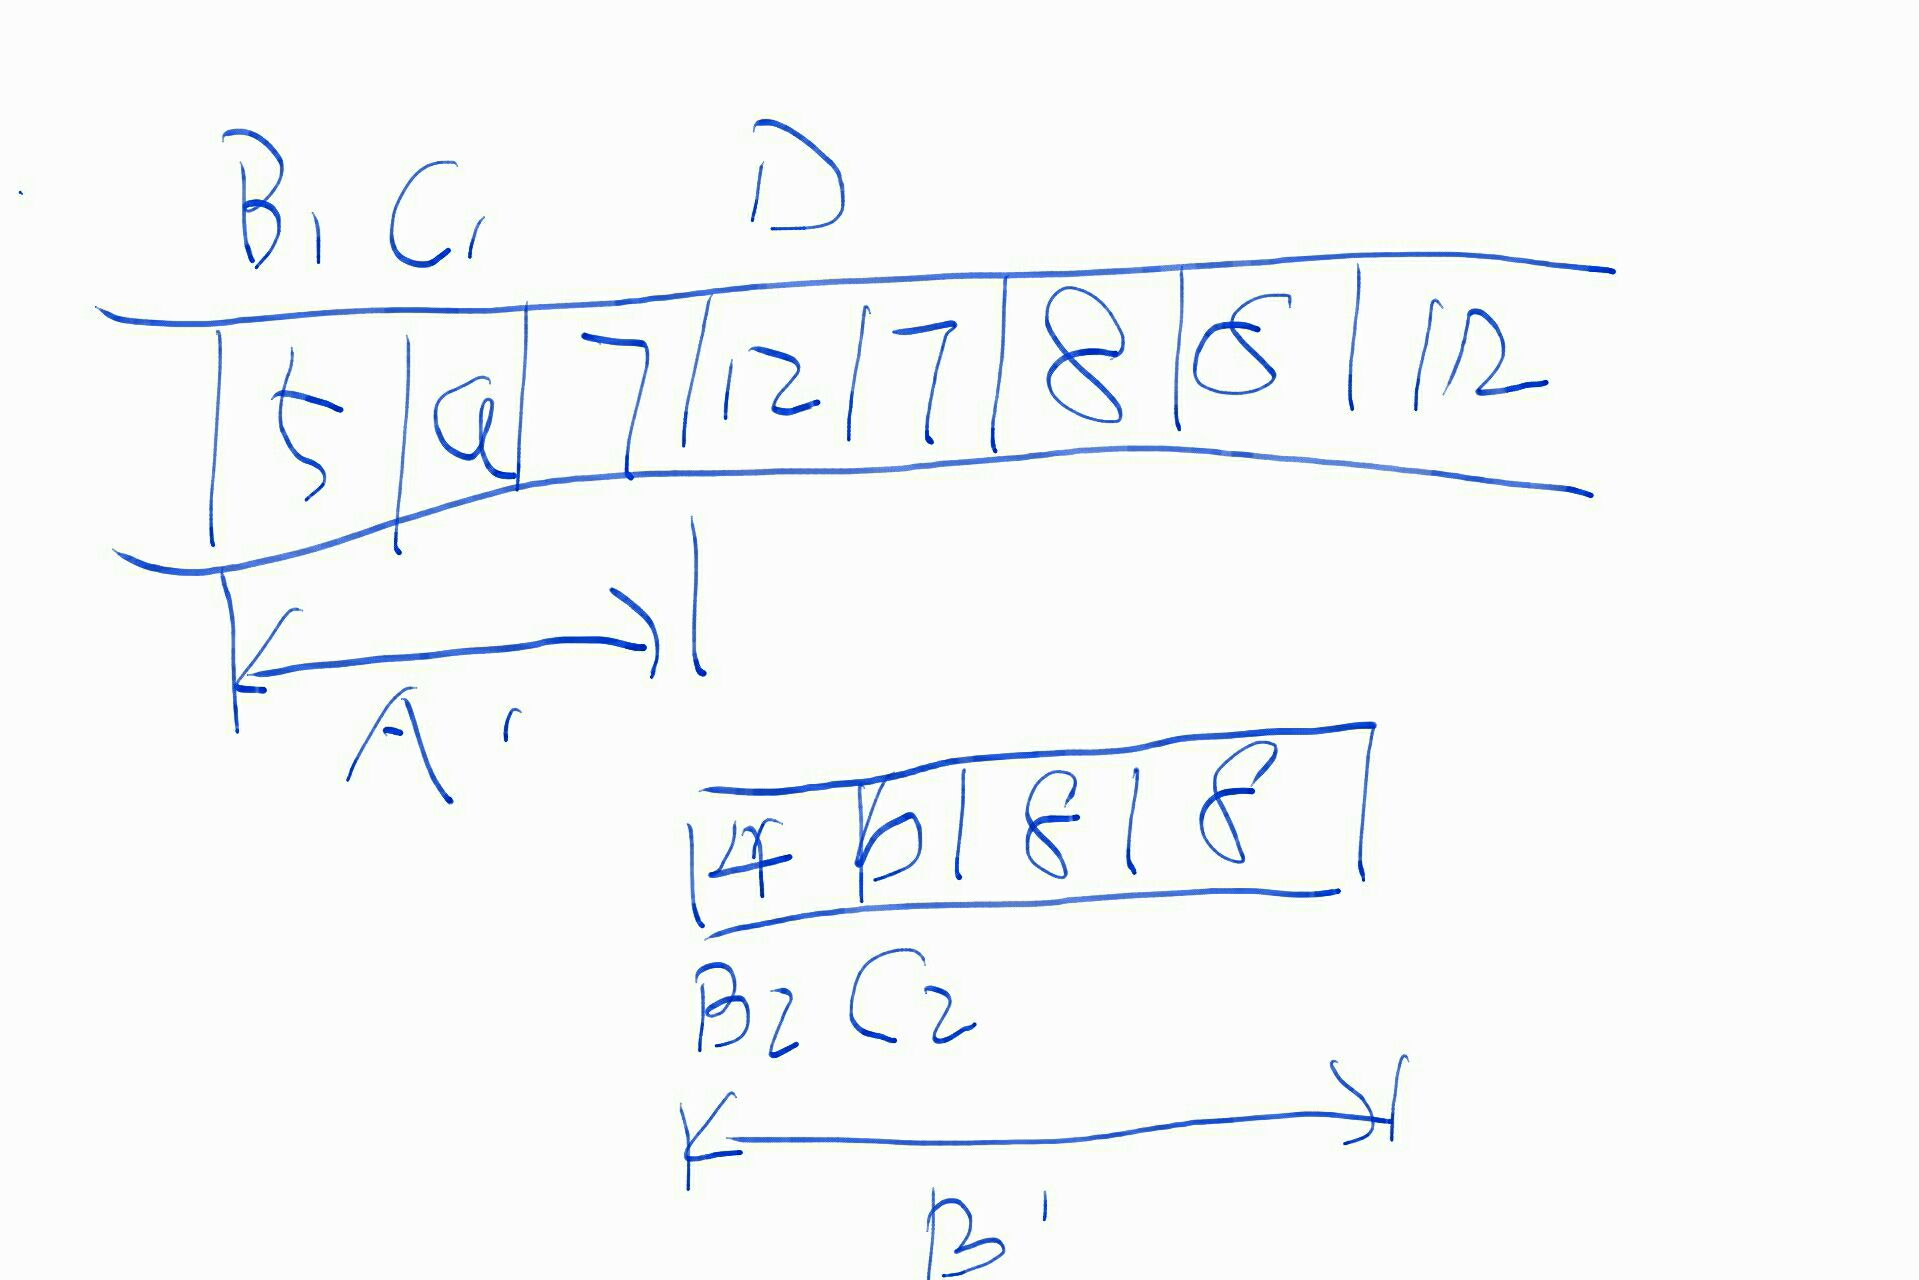 B1 C1 D
5 a 7 12 7 8 8 12
A'
4 b 8 8
B2 C2
B'